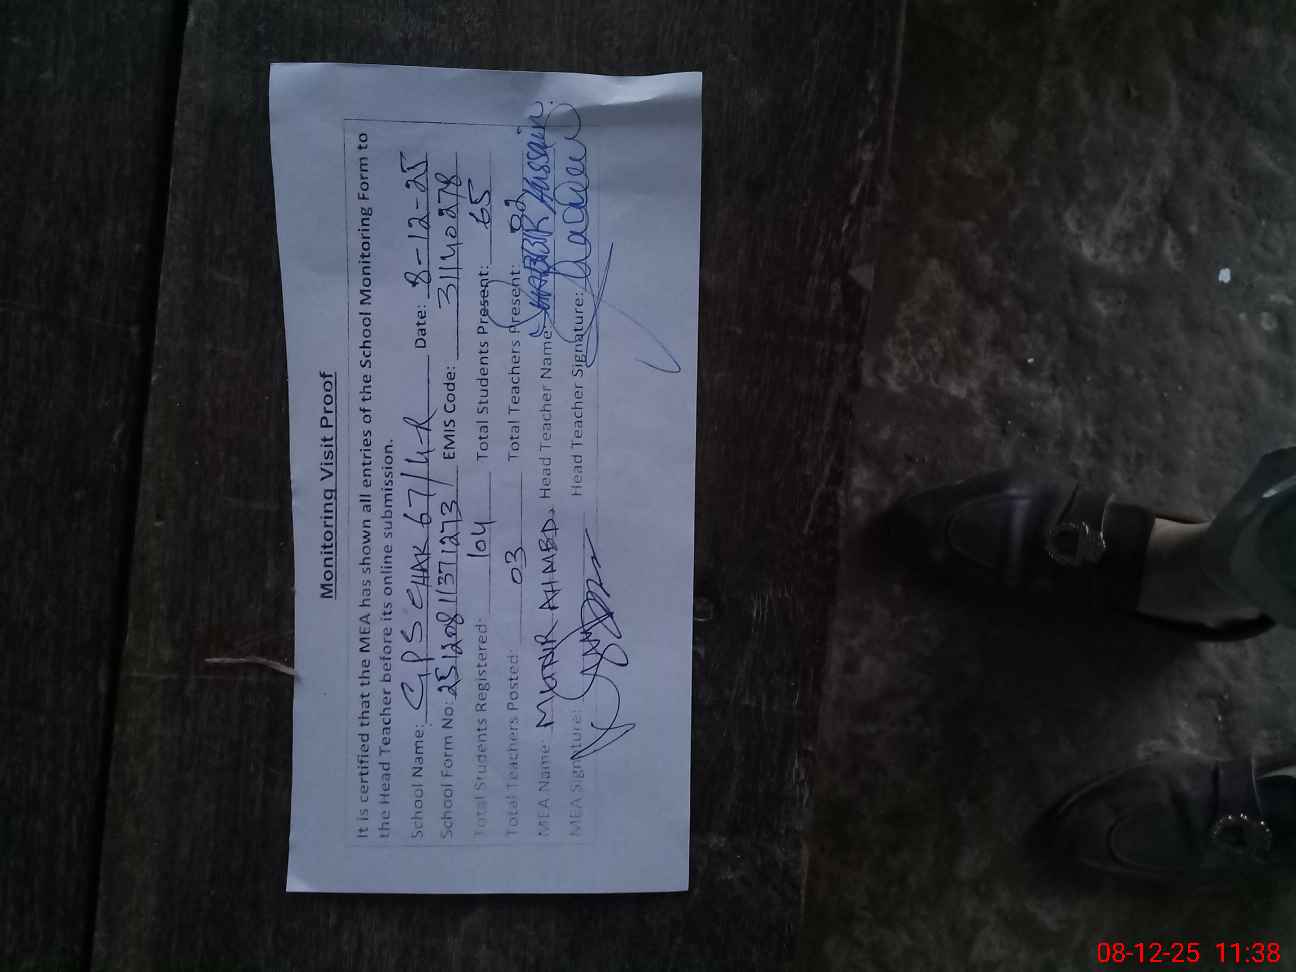 Monitoring Visit Proof
It is certified that the MEA has shown all entries of the School Monitoring Form to
the Head Teacher before its online submission.
School Name: GPS CHAK 67/4-R Date: 8-12-25
School Form No: 25120811371273 EMIS Code: 31140278
Total Students Registered: 104 Total Students Present: 65
Total Teachers Posted: 03 Total Teachers Present: 02
MEA Name: MUNIR AHMED Head Teacher Name: SHABBIR Hussain
MEA Signature: Head Teacher Signature:
08-12-25 11:38